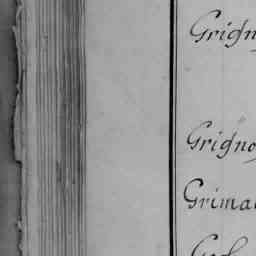 Grign
Grigno
Grima